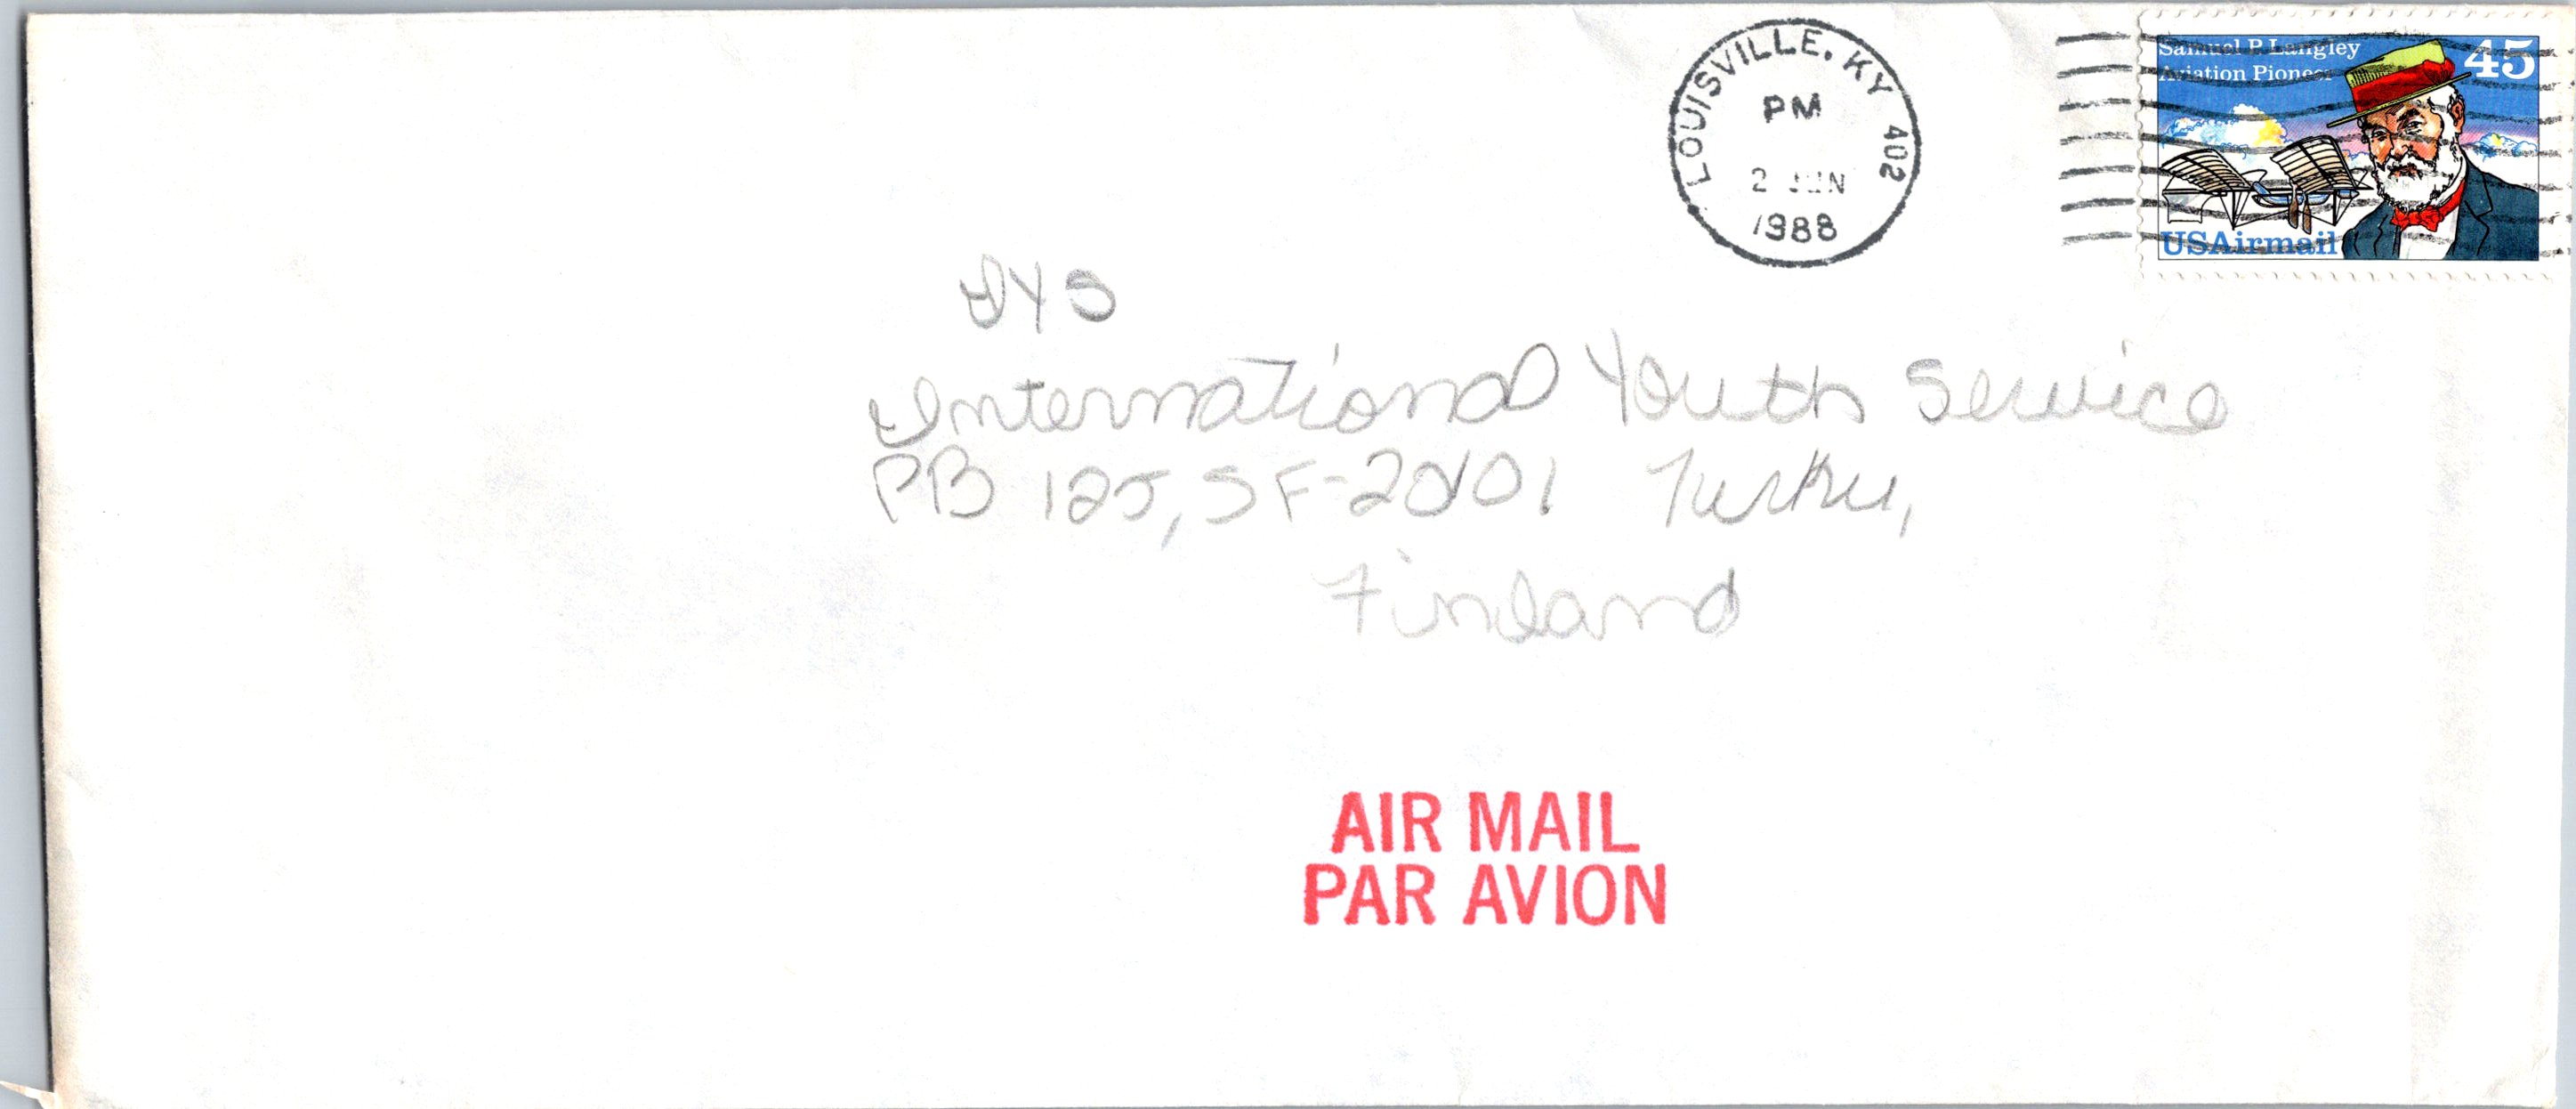 LOUISVILLE, KY 402
PM
2 JUN
1988
Samuel P. Langley
Aviation Pioneer
45
USAirmail
IYS
International Youth Service
PB 125, SF-20101 Turku,
Finland
AIR MAIL
PAR AVION